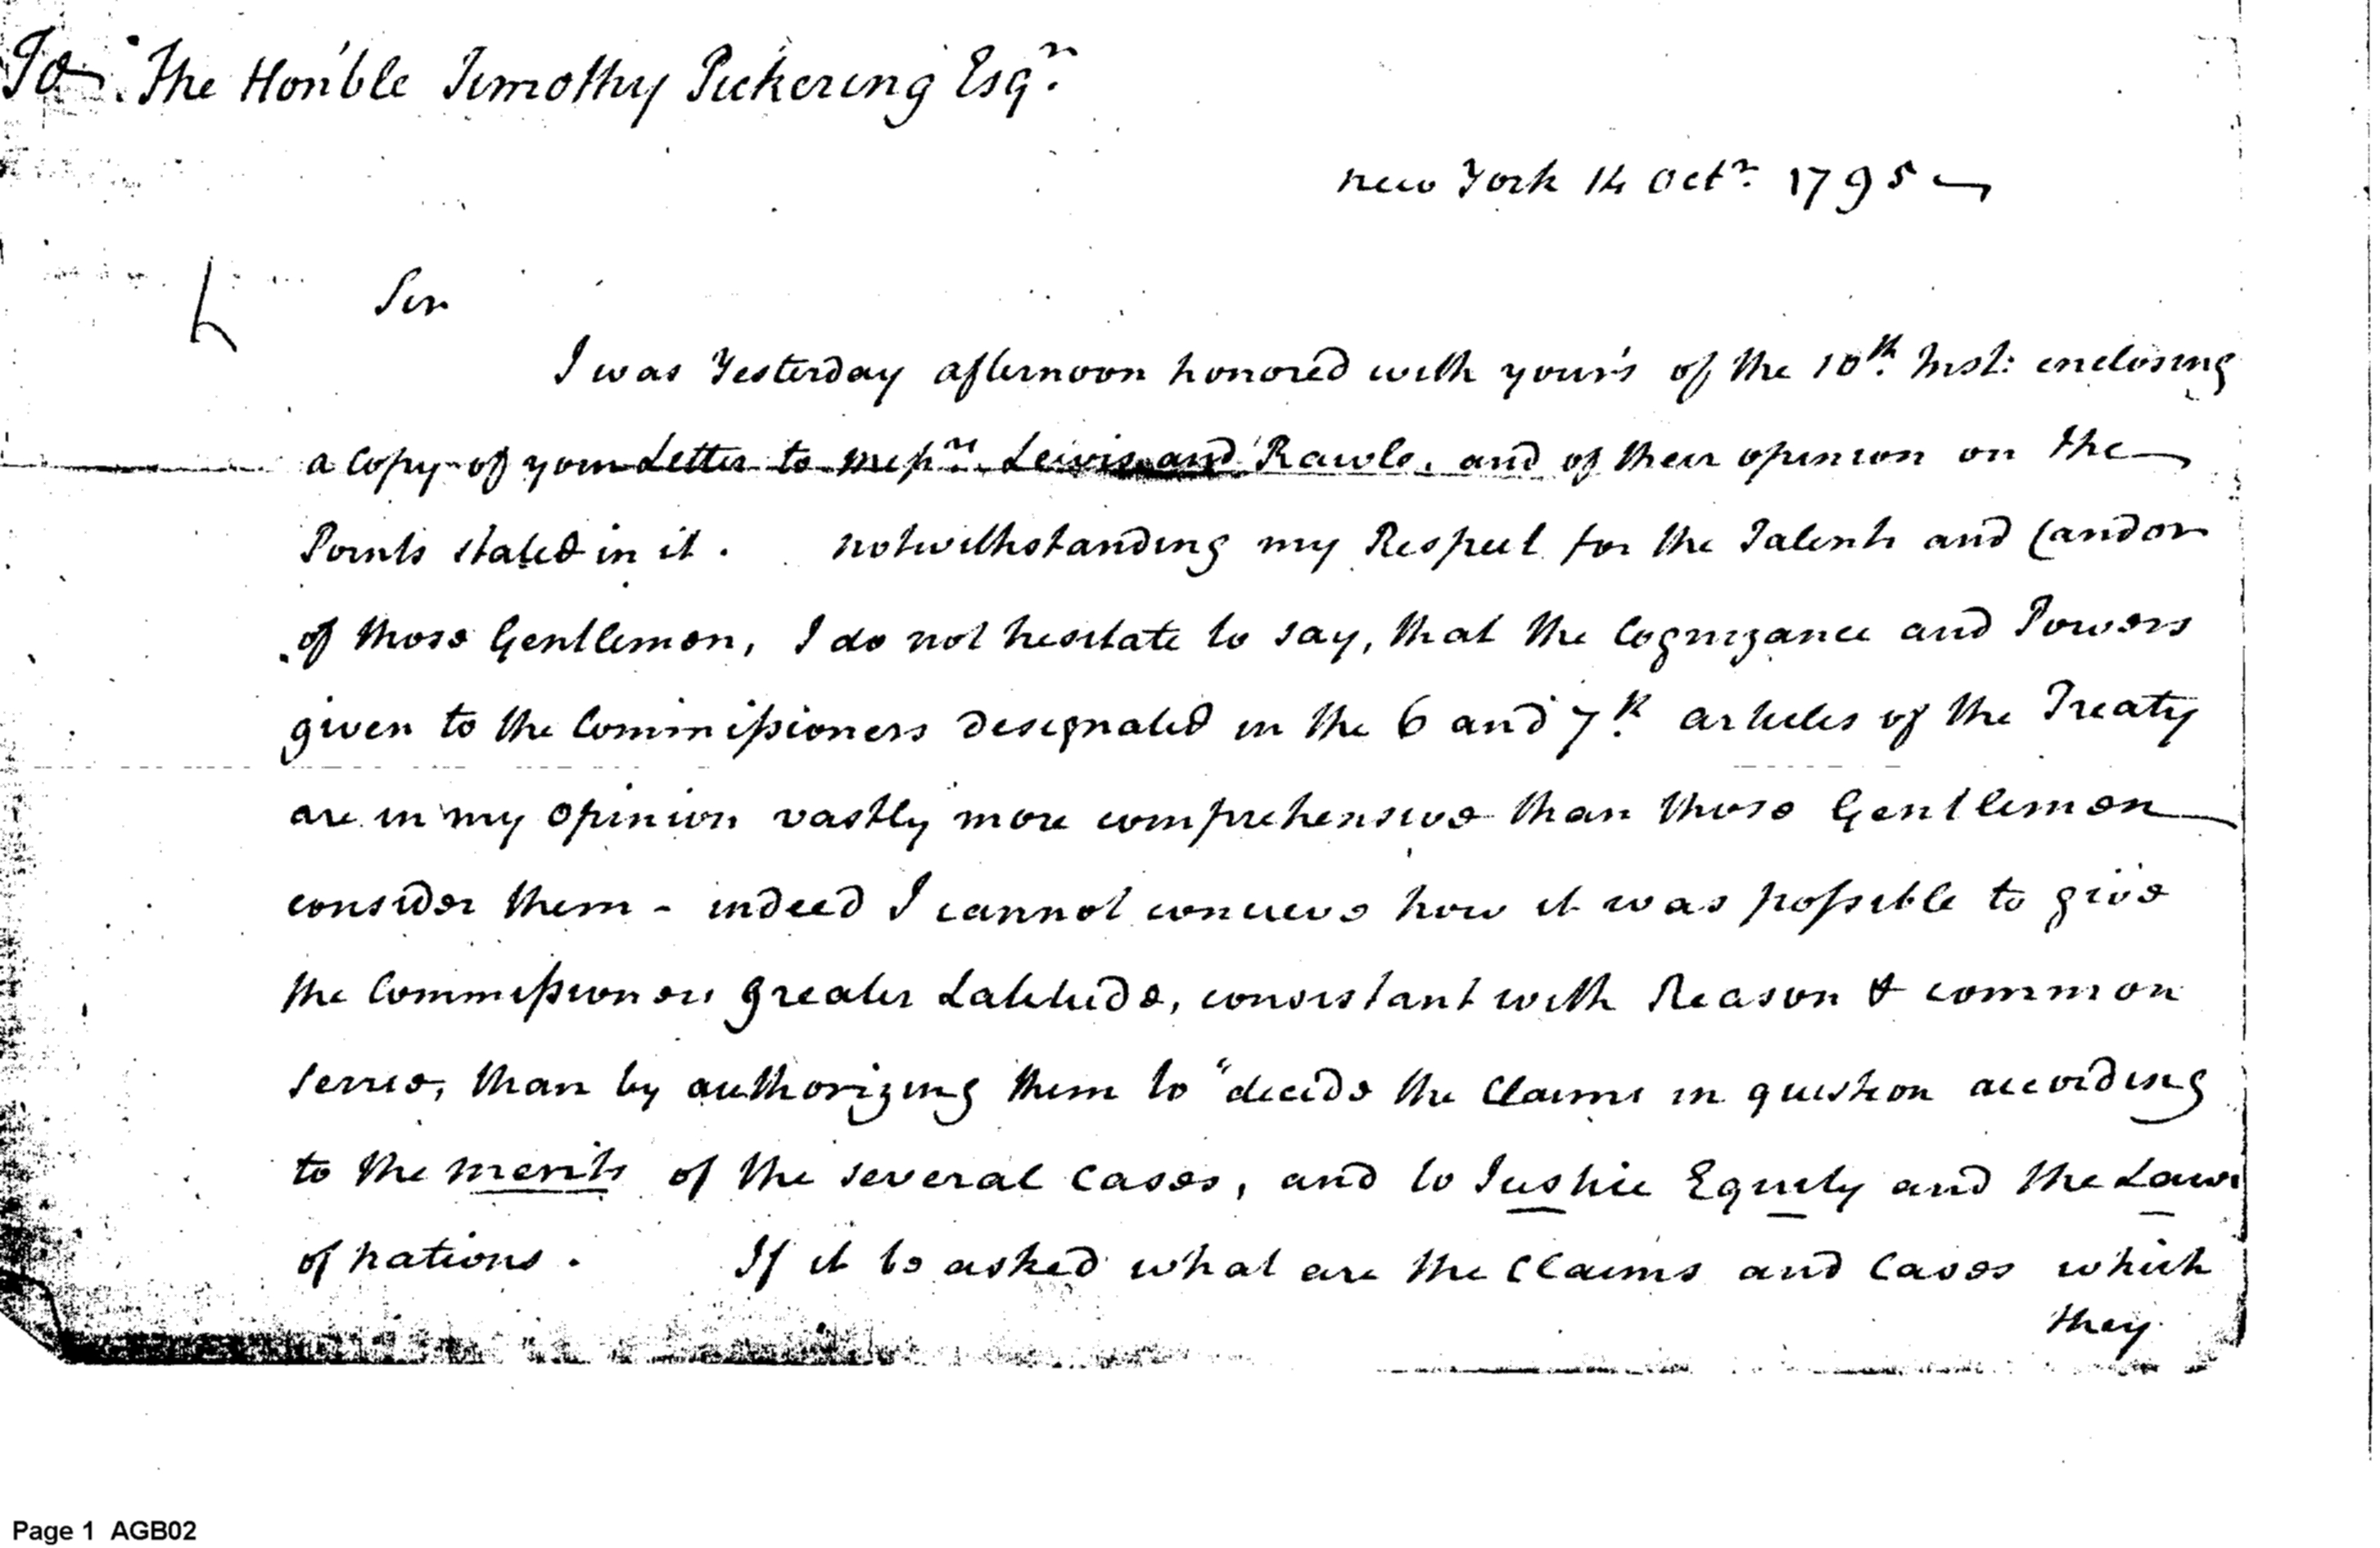 To The Hon'ble Timothy Pickering Esqr.
New York 14 Octr. 1795
Sir
I was Yesterday afternoon honored with your's of the 10th. Inst: enclosing
a Copy of your Letter to Messrs. Lewis and Rawle, and of their opinion on the
Points stated in it. notwithstanding my Respect for the Talents and Candor
of those Gentlemen, I do not hesitate to say, that the Cognizance and Powers
given to the Commissioners designated in the 6 and 7th. articles of the Treaty
are in my opinion vastly more comprehensive than those Gentlemen
consider them - indeed I cannot conceive how it was possible to give
the Commissioners greater Latitude, consistant with Reason & common
sense, than by authorizing them to "decide the Claims in question according
to the merits of the several Cases, and to Justice Equity and the Laws
of nations. If it be asked what are the Claims and Cases which
they
Page 1 AGB02